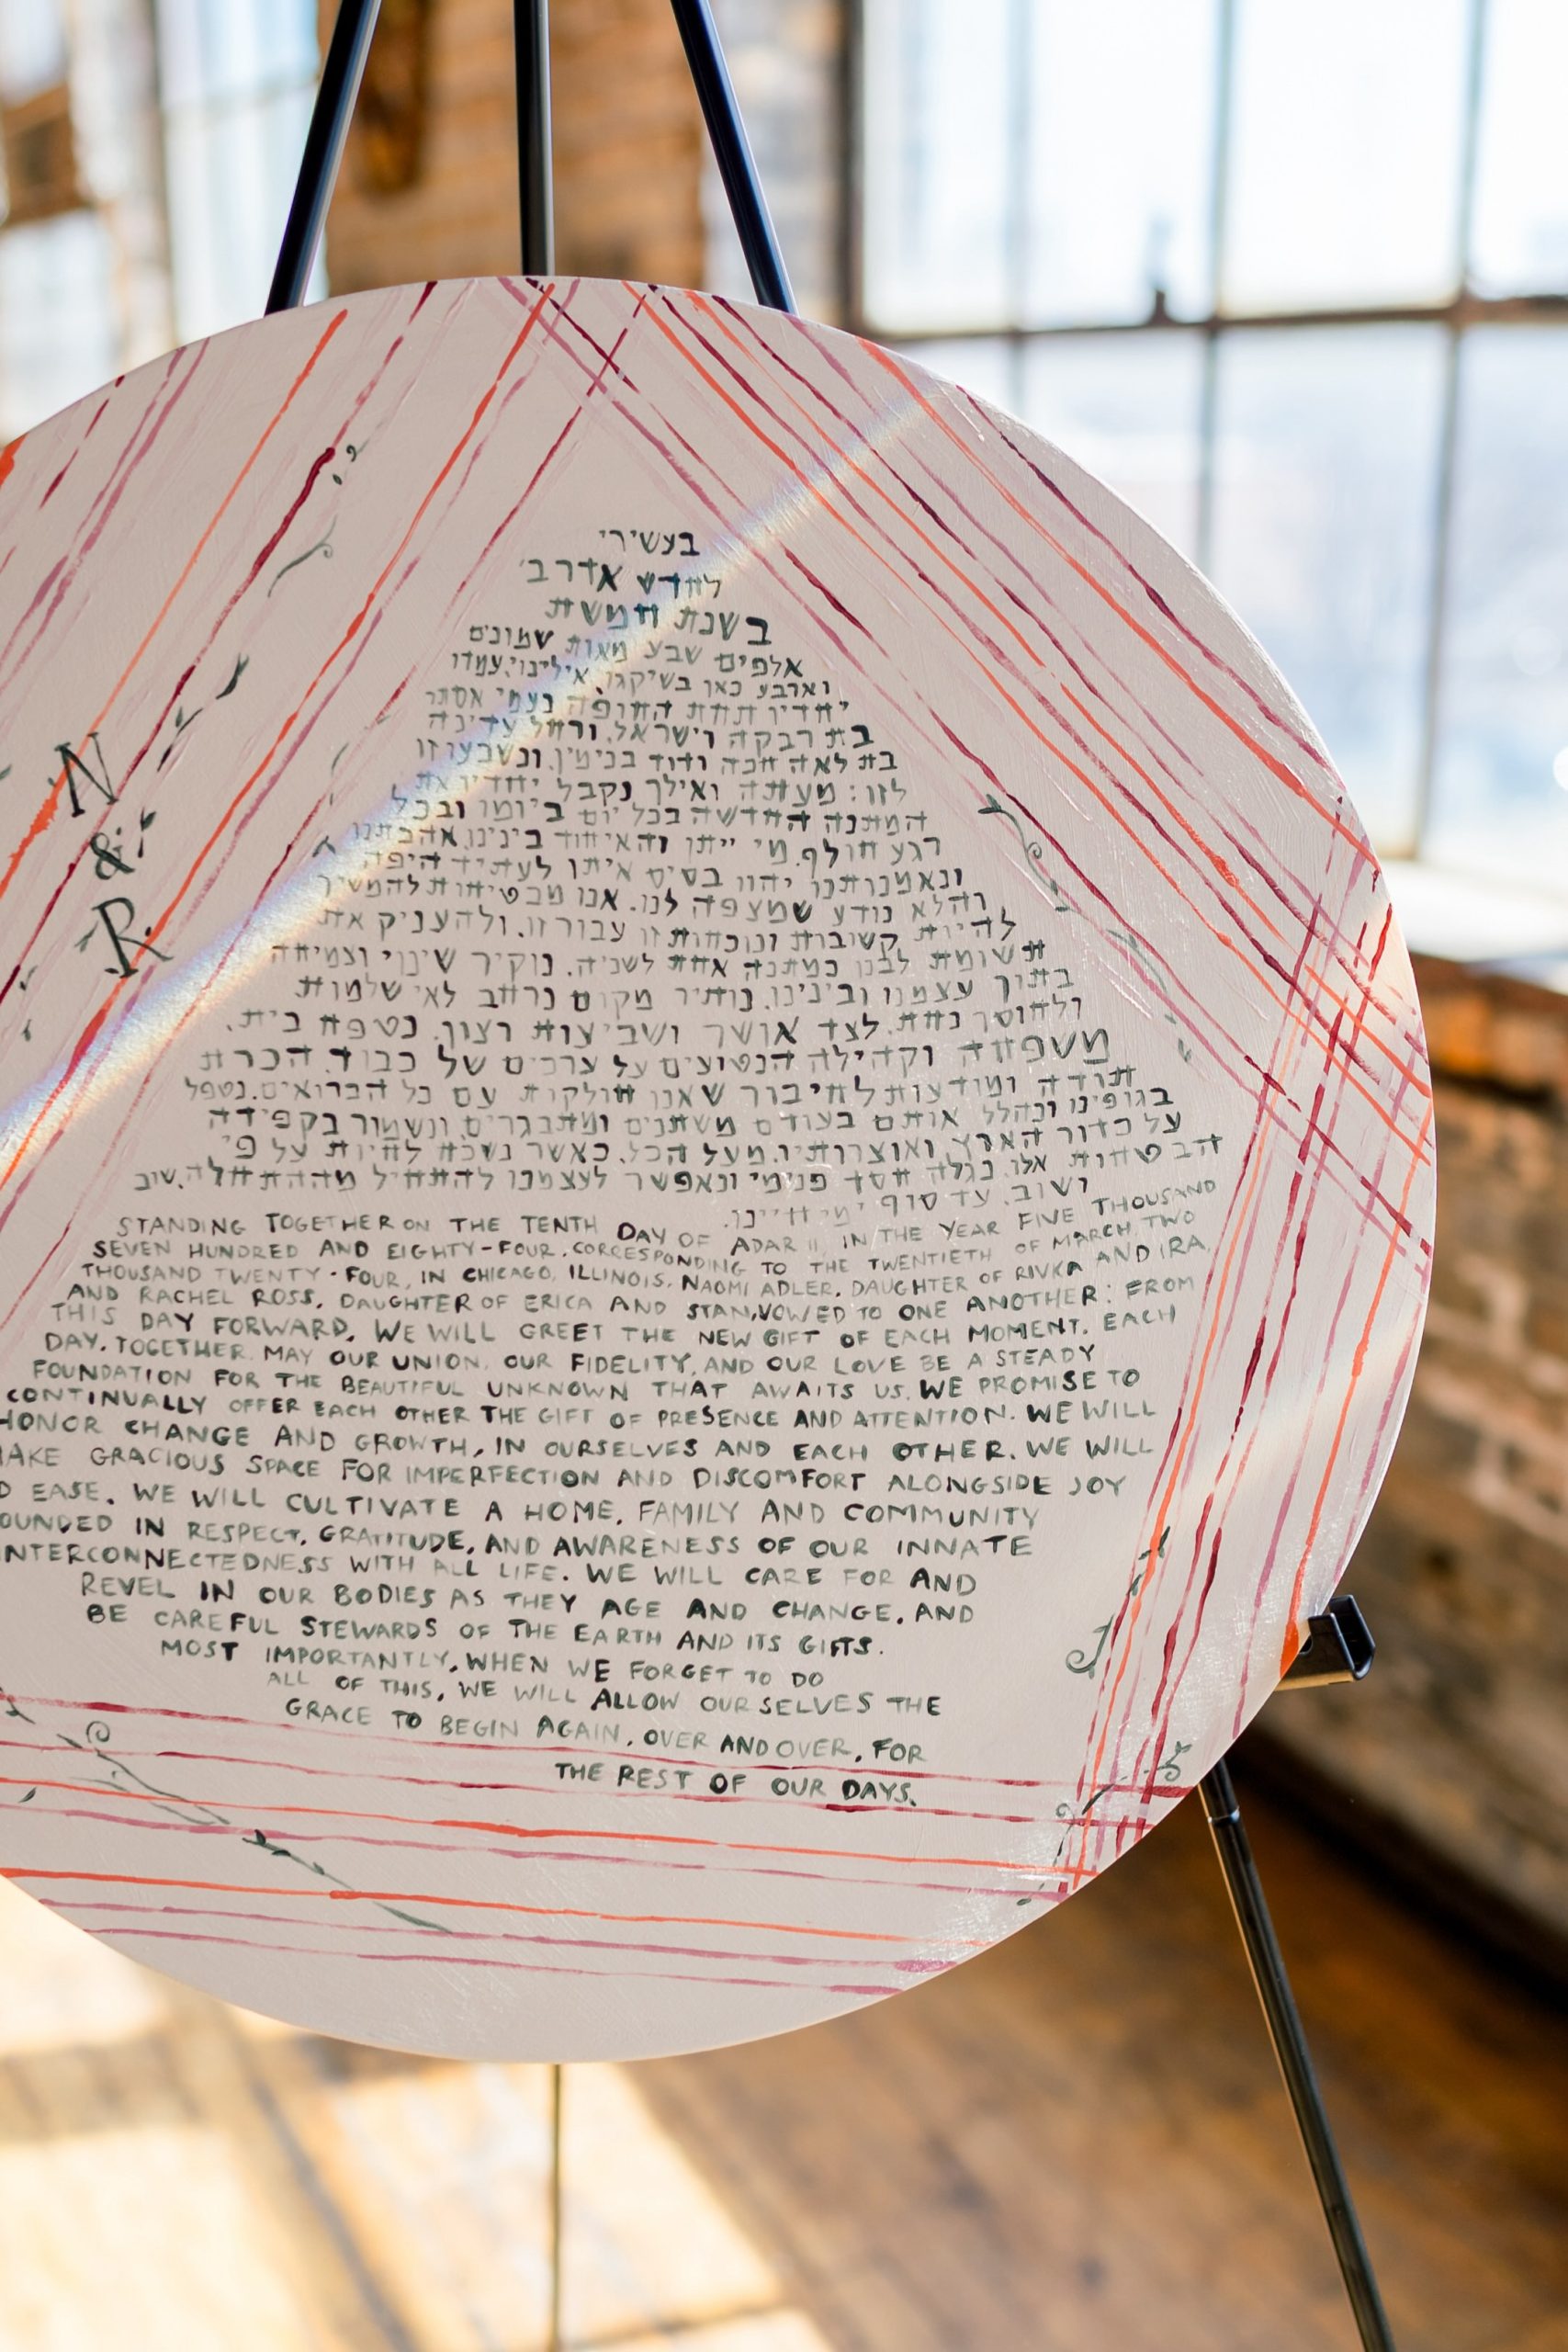 N
&
R
בעשירי
לחדש אדר ב'
בשנת חמשת
אלפים שבע מאות שמונים
וארבע כאן בשיקגו, אילינוי, עמדו
יחדיו תחת החופה נעמי אסתר
בת רבקה וישראל, ורחל עדינה
בת לאה חכה ודוד בנימין, ונשבעו זו
לזו: מעתה ואילך נקבל יחדיו את
המתנה החדשה בכל יום ביומו ובכל
רגע חולף. מי ייתן והאיחוד בינינו, אהבתנו
ונאמנותנו יהוו בסיס איתן לעתיד היפה
והלא נודע שמצפה לנו. אנו מבטיחות להמשיך
להיות קשובות ונוכחות זו עבור זו, ולהעניק את
תשומת לבנו כמתנה אחת לשניה. נוקיר שינוי וצמיחה
בתוך עצמנו ובינינו. נותיר מקום נרחב לאי שלמות
ולחוסר נחת, לצד אושר ושביעות רצון. נטפח בית,
משפחה וקהילה הנטועים על ערכים של כבוד, הכרת
תודה ומודעות לחיבור שאנו חולקות עם כל הברואים. נטפל
בגופינו ונהלל אותם בעודם משתנים ומתבגרים, ונשמור בקפידה
על כדור הארץ ואוצרותיו. מעל הכל, כאשר נשכח לחיות על פי
הבטחות אלו, נגלה חסד פנימי ונאפשר לעצמנו להתחיל מההתחלה, שוב
ושוב, עד סוף ימי חיינו.
STANDING TOGETHER ON THE TENTH DAY OF ADAR II, IN THE YEAR FIVE THOUSAND
SEVEN HUNDRED AND EIGHTY-FOUR, CORRESPONDING TO THE TWENTIETH OF MARCH TWO
THOUSAND TWENTY-FOUR, IN CHICAGO, ILLINOIS, NAOMI ADLER, DAUGHTER OF RIVKA AND IRA,
AND RACHEL ROSS, DAUGHTER OF ERICA AND STAN, VOWED TO ONE ANOTHER: FROM
THIS DAY FORWARD, WE WILL GREET THE NEW GIFT OF EACH MOMENT, EACH
DAY, TOGETHER. MAY OUR UNION, OUR FIDELITY, AND OUR LOVE BE A STEADY
FOUNDATION FOR THE BEAUTIFUL UNKNOWN THAT AWAITS US. WE PROMISE TO
CONTINUALLY OFFER EACH OTHER THE GIFT OF PRESENCE AND ATTENTION. WE WILL
HONOR CHANGE AND GROWTH, IN OURSELVES AND EACH OTHER. WE WILL
MAKE GRACIOUS SPACE FOR IMPERFECTION AND DISCOMFORT ALONGSIDE JOY
D EASE. WE WILL CULTIVATE A HOME, FAMILY AND COMMUNITY
OUNDED IN RESPECT, GRATITUDE, AND AWARENESS OF OUR INNATE
INTERCONNECTEDNESS WITH ALL LIFE. WE WILL CARE FOR AND
REVEL IN OUR BODIES AS THEY AGE AND CHANGE, AND
BE CAREFUL STEWARDS OF THE EARTH AND ITS GIFTS.
MOST IMPORTANTLY, WHEN WE FORGET TO DO
ALL OF THIS, WE WILL ALLOW OURSELVES THE
GRACE TO BEGIN AGAIN, OVER AND OVER, FOR
THE REST OF OUR DAYS.